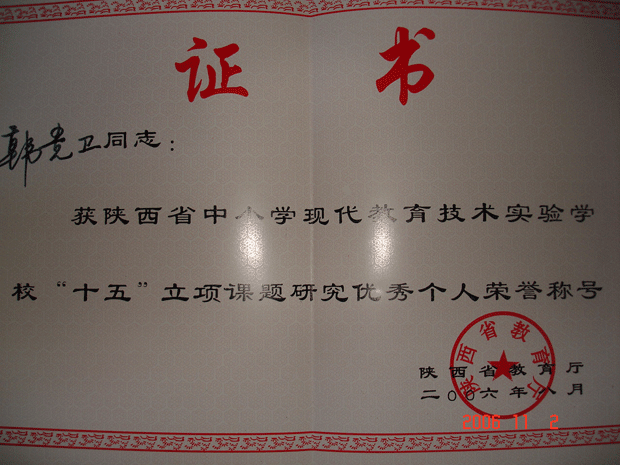 证书
韩党卫同志：
获陕西省中小学现代教育技术实验学
校“十五”立项课题研究优秀个人荣誉称号
陕西省教育厅
二〇〇六年八月
陕西省教育厅
2006 11 2